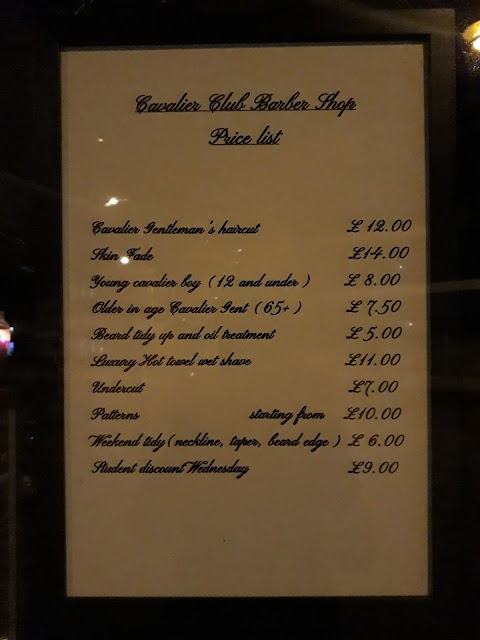 Cavalier Club Barber Shop
Price list
Cavalier Gentleman's haircut £ 12.00
Skin Fade £14.00
Young cavalier boy ( 12 and under ) £ 8.00
Older in age Cavalier Gent ( 65+ ) £ 7.50
Beard tidy up and oil treatment £ 5.00
Luxury Hot towel wet shave £11.00
Undercut £7.00
Patterns starting from £10.00
Weekend tidy( neckline, taper, beard edge ) £ 6.00
Student discount Wednesday £9.00